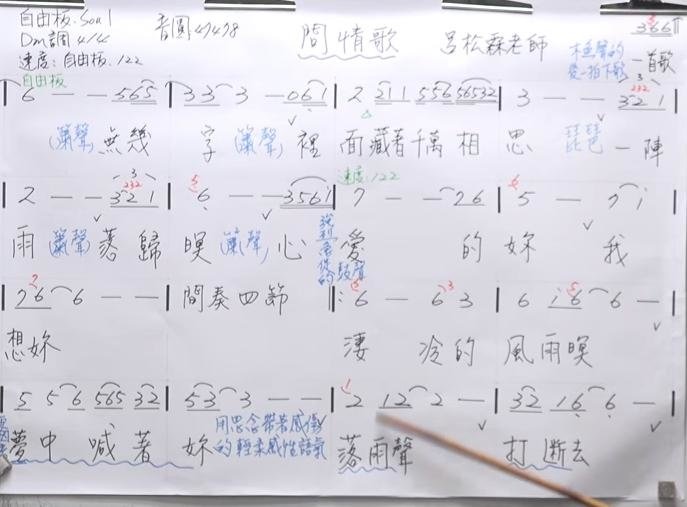 自由板.Soul
Dm調 4/4
速度:自由板.122
音圓47498
問情歌
呂松霖老師
木魚聲的
後一拍下歌
3661
一首歌
自由板
6 — — 565 | 33 3 — 061 | 2 211 556 56532 | 3 — — 321
(簫聲) 無幾 字 (簫聲) 裡 面藏著千萬相 思 琵琶 一陣
速度:122
2 — — 321 | 6 — — 3561 | 7 — — 76 | 5 — 7 i
雨 (簫聲) 落歸 暝 (簫聲) 心 愛 的 妳 我
76 6 — — | 間奏四節 | 6 — 6 3 | 6 i6 6 —
想妳 淒 冷的 風雨暝
5 5 6 565 32 | 53 3 — — | 2 12 2 — | 32 16 6 —
夢中 喊著 妳 落雨聲 打斷去
用思念帶著感傷
的輕柔感性語氣